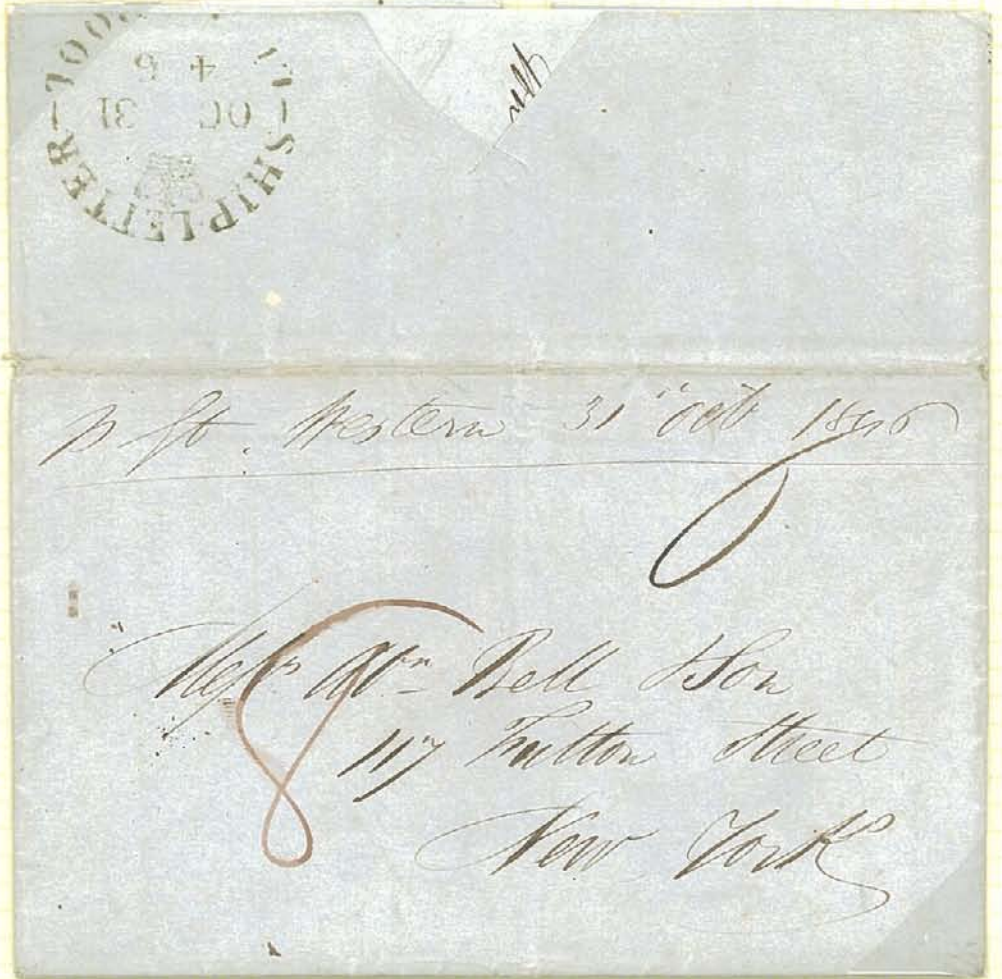 SHIP LETTER
OC 31
p Gt. Western 31" Oct 1846
8
Messrs Abm Bell & Son
117 Fulton Street
New York